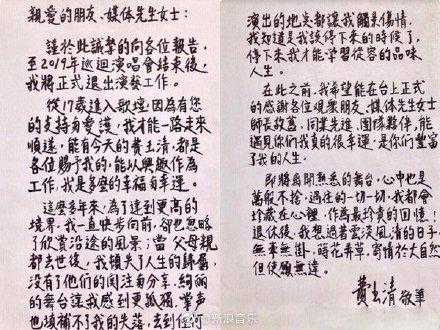 親愛的朋友、媒体先生女士：
謹於此誠摯的向各位報告，
至2019年巡迴演唱會結束後，
我將正式退出演藝工作。
從17歲進入歌壇，因為有您
的支持與愛護，我才能一路走來
順遂，能有今天的費玉清，都是
各位賜予我的，能以興趣作為
工作，我是多麼的幸福與幸運。
這麼多年來，為了達到更高的
境界，我一直快步向前，卻也忽略
了欣賞沿途的風景；當父母親
都去世後，我頓失了人生的歸屬，
沒有了他們的關注與分享，絢麗
的舞台讓我感到更孤獨，掌聲
也填補不了我的失落，去到任何
演出的地點都讓我觸景傷情，
我知道是我該停下來的時候了，
停下來我才能學習從容的品味
人生。
在此之前，我希望能在台上正式
的感謝各位觀眾朋友、媒体先生女士
師長故舊、同業先進、團隊夥伴，能
遇見你們我真的很幸運，是你們豐富
了我的人生。
即將離開熟悉的舞台，心中也是
萬般不捨，過往的一切一切，我都會
珍藏在心裡，作為最珍貴的回憶！
退休後，我想過著雲淡風清的日子，
無牽無掛，蒔花弄草，寄情於大自然
但使願無違。
費玉清 敬筆
@新浪音乐